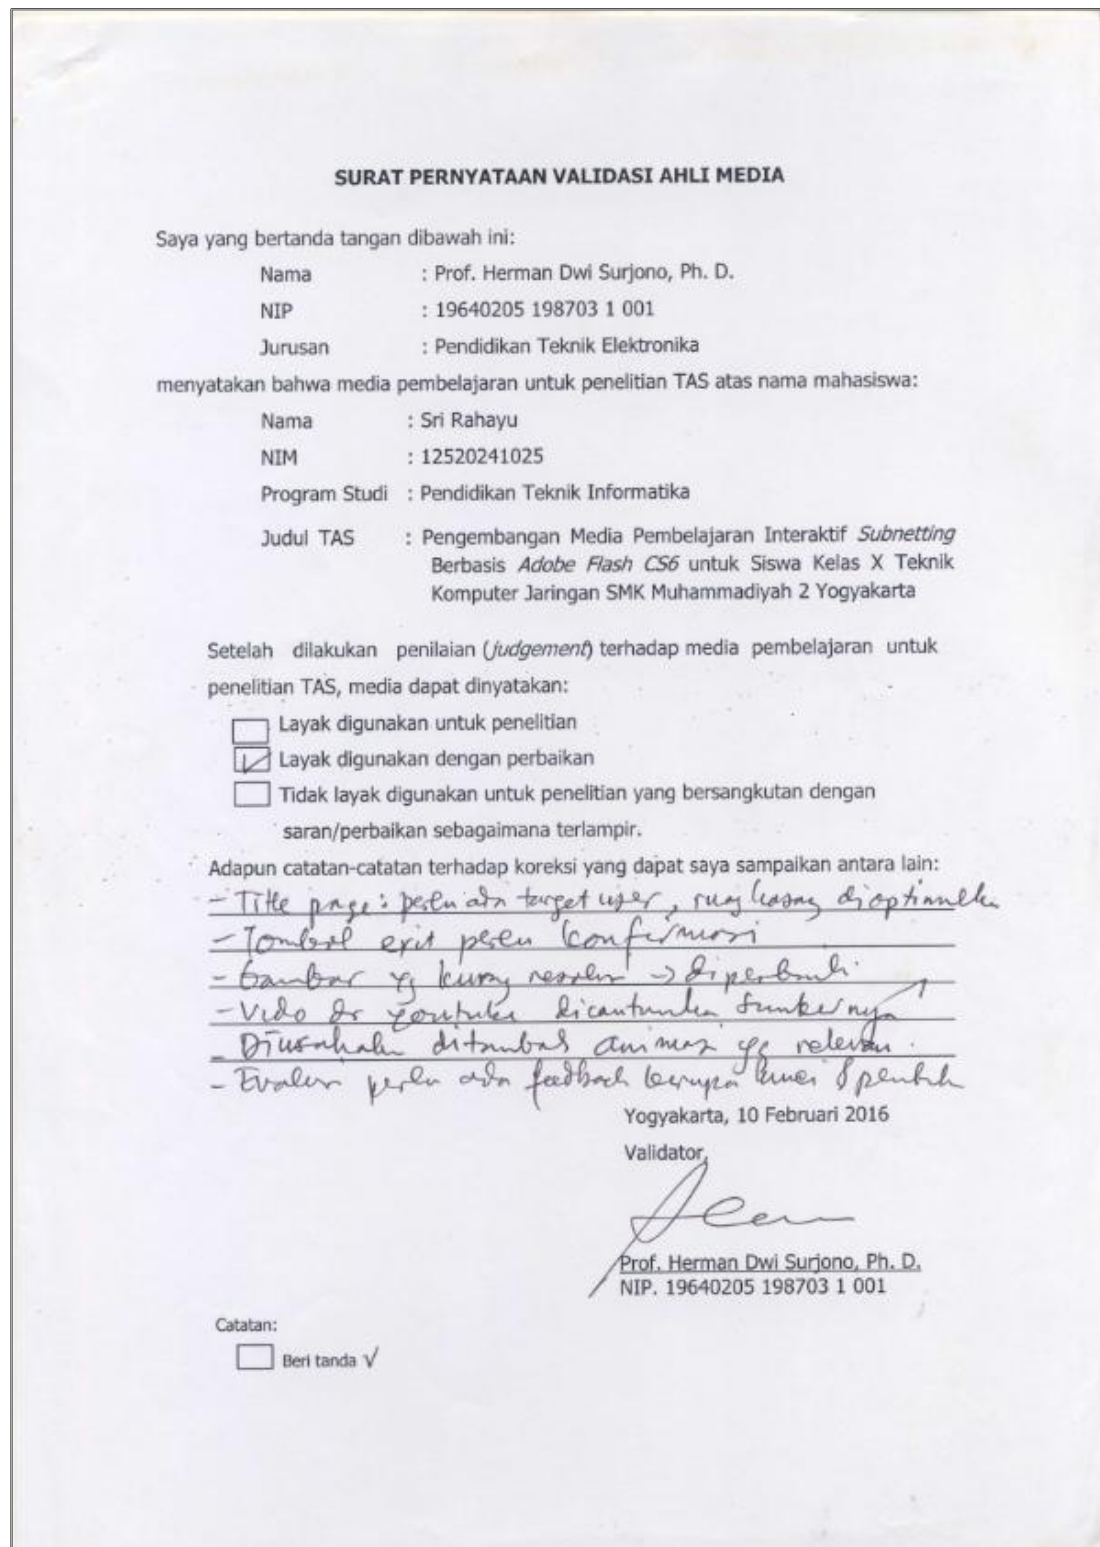 SURAT PERNYATAAN VALIDASI AHLI MEDIA
Saya yang bertanda tangan dibawah ini:
Nama : Prof. Herman Dwi Surjono, Ph. D.
NIP : 19640205 198703 1 001
Jurusan : Pendidikan Teknik Elektronika
menyatakan bahwa media pembelajaran untuk penelitian TAS atas nama mahasiswa:
Nama : Sri Rahayu
NIM : 12520241025
Program Studi : Pendidikan Teknik Informatika
Judul TAS : Pengembangan Media Pembelajaran Interaktif Subnetting
Berbasis Adobe Flash CS6 untuk Siswa Kelas X Teknik
Komputer Jaringan SMK Muhammadiyah 2 Yogyakarta
Setelah dilakukan penilaian (judgement) terhadap media pembelajaran untuk
penelitian TAS, media dapat dinyatakan:
Layak digunakan untuk penelitian
Layak digunakan dengan perbaikan
Tidak layak digunakan untuk penelitian yang bersangkutan dengan
saran/perbaikan sebagaimana terlampir.
Adapun catatan-catatan terhadap koreksi yang dapat saya sampaikan antara lain:
- Title page: perlu ada target user, ruang kosong dioptimalkan
- Tombol exit perlu konfirmasi
- Gambar yg kurang → diperbaiki
- Video dr youtube dicantumkan sumbernya
- Diusahakan ditambah animasi yg relevan.
- Evaluasi perlu ada feedback berupa kunci &
Yogyakarta, 10 Februari 2016
Validator,
Prof. Herman Dwi Surjono, Ph. D.
NIP. 19640205 198703 1 001
Catatan:
Beri tanda √